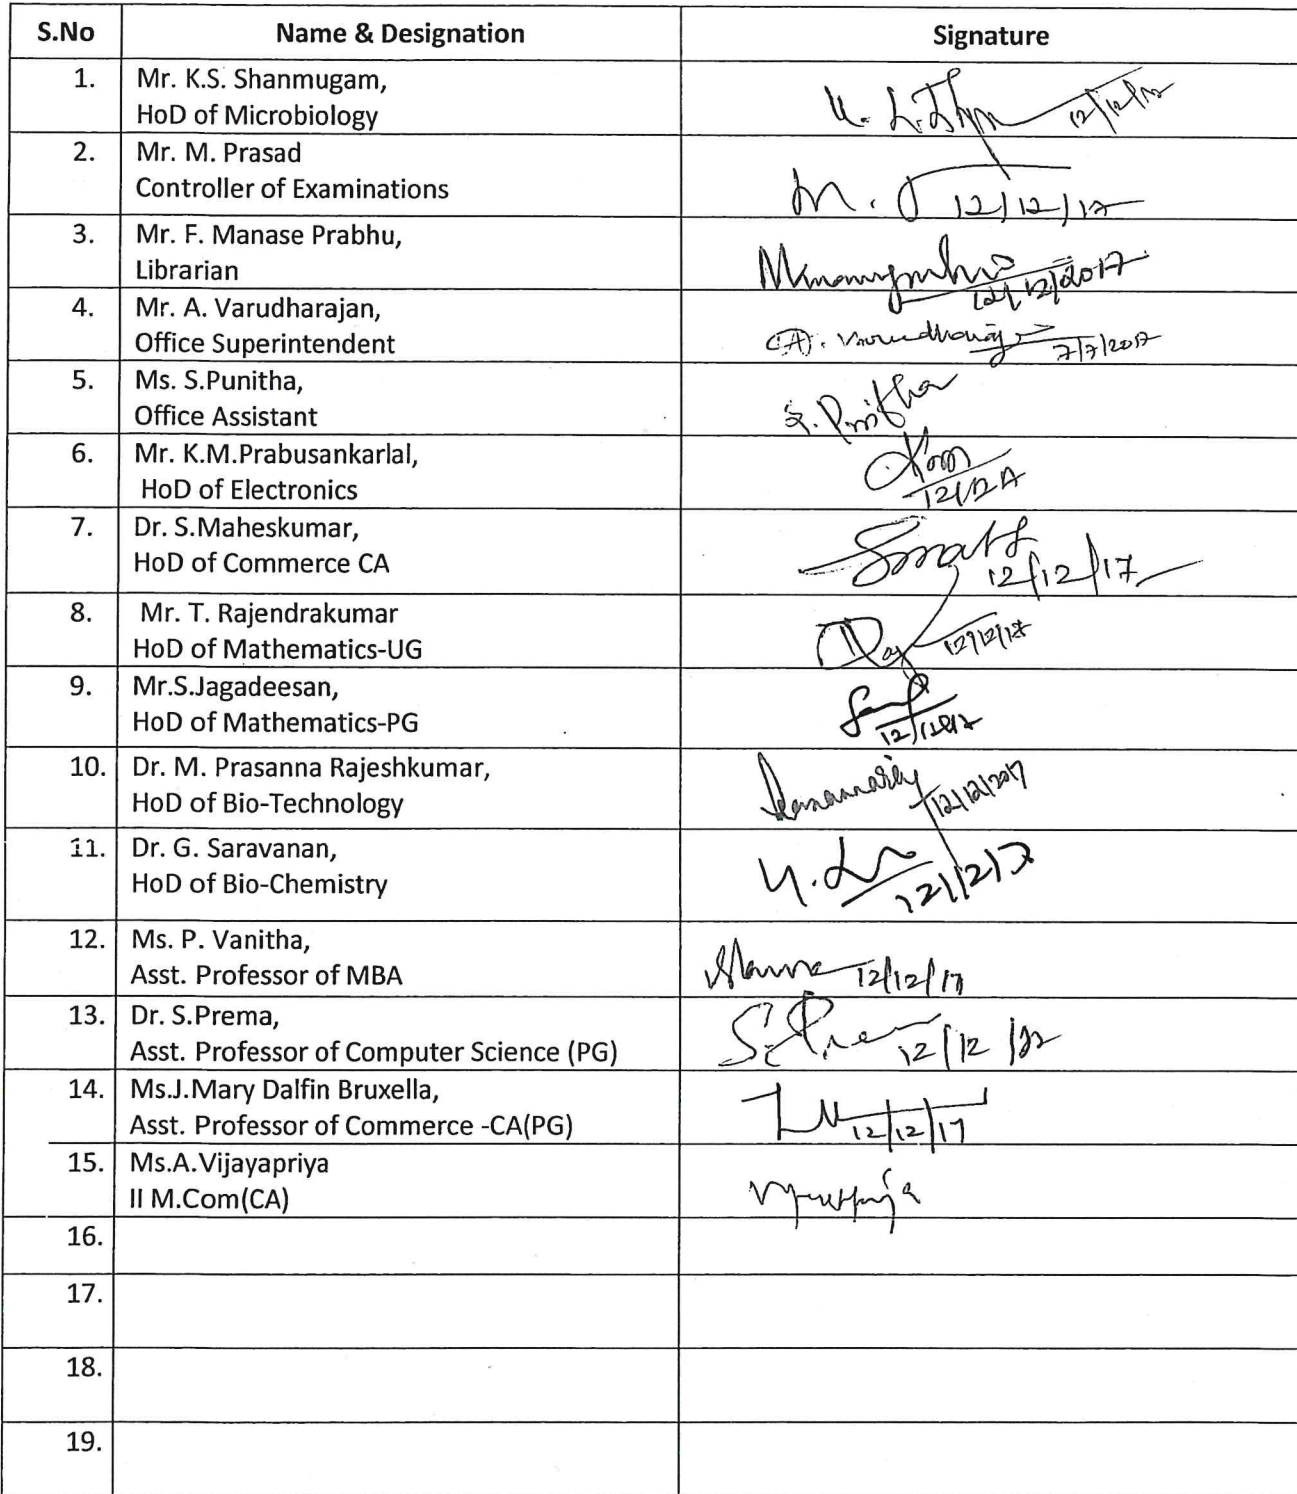 S.No Name & Designation Signature
1. Mr. K.S. Shanmugam,
HoD of Microbiology
2. Mr. M. Prasad
Controller of Examinations
M. 12/12/17
3. Mr. F. Manase Prabhu,
Librarian
12/12/2017
4. Mr. A. Varudharajan,
Office Superintendent
7/7/2017
5. Ms. S.Punitha,
Office Assistant
S. Punitha
6. Mr. K.M.Prabusankarlal,
HoD of Electronics
7. Dr. S.Maheskumar,
HoD of Commerce CA
12/12/17
8. Mr. T. Rajendrakumar
HoD of Mathematics-UG
9. Mr.S.Jagadeesan,
HoD of Mathematics-PG
10. Dr. M. Prasanna Rajeshkumar,
HoD of Bio-Technology
12/12/2017
11. Dr. G. Saravanan,
HoD of Bio-Chemistry
12. Ms. P. Vanitha,
Asst. Professor of MBA
12/12/17
13. Dr. S.Prema,
Asst. Professor of Computer Science (PG)
14. Ms.J.Mary Dalfin Bruxella,
Asst. Professor of Commerce -CA(PG)
12/12/17
15. Ms.A.Vijayapriya
II M.Com(CA)
16.
17.
18.
19.